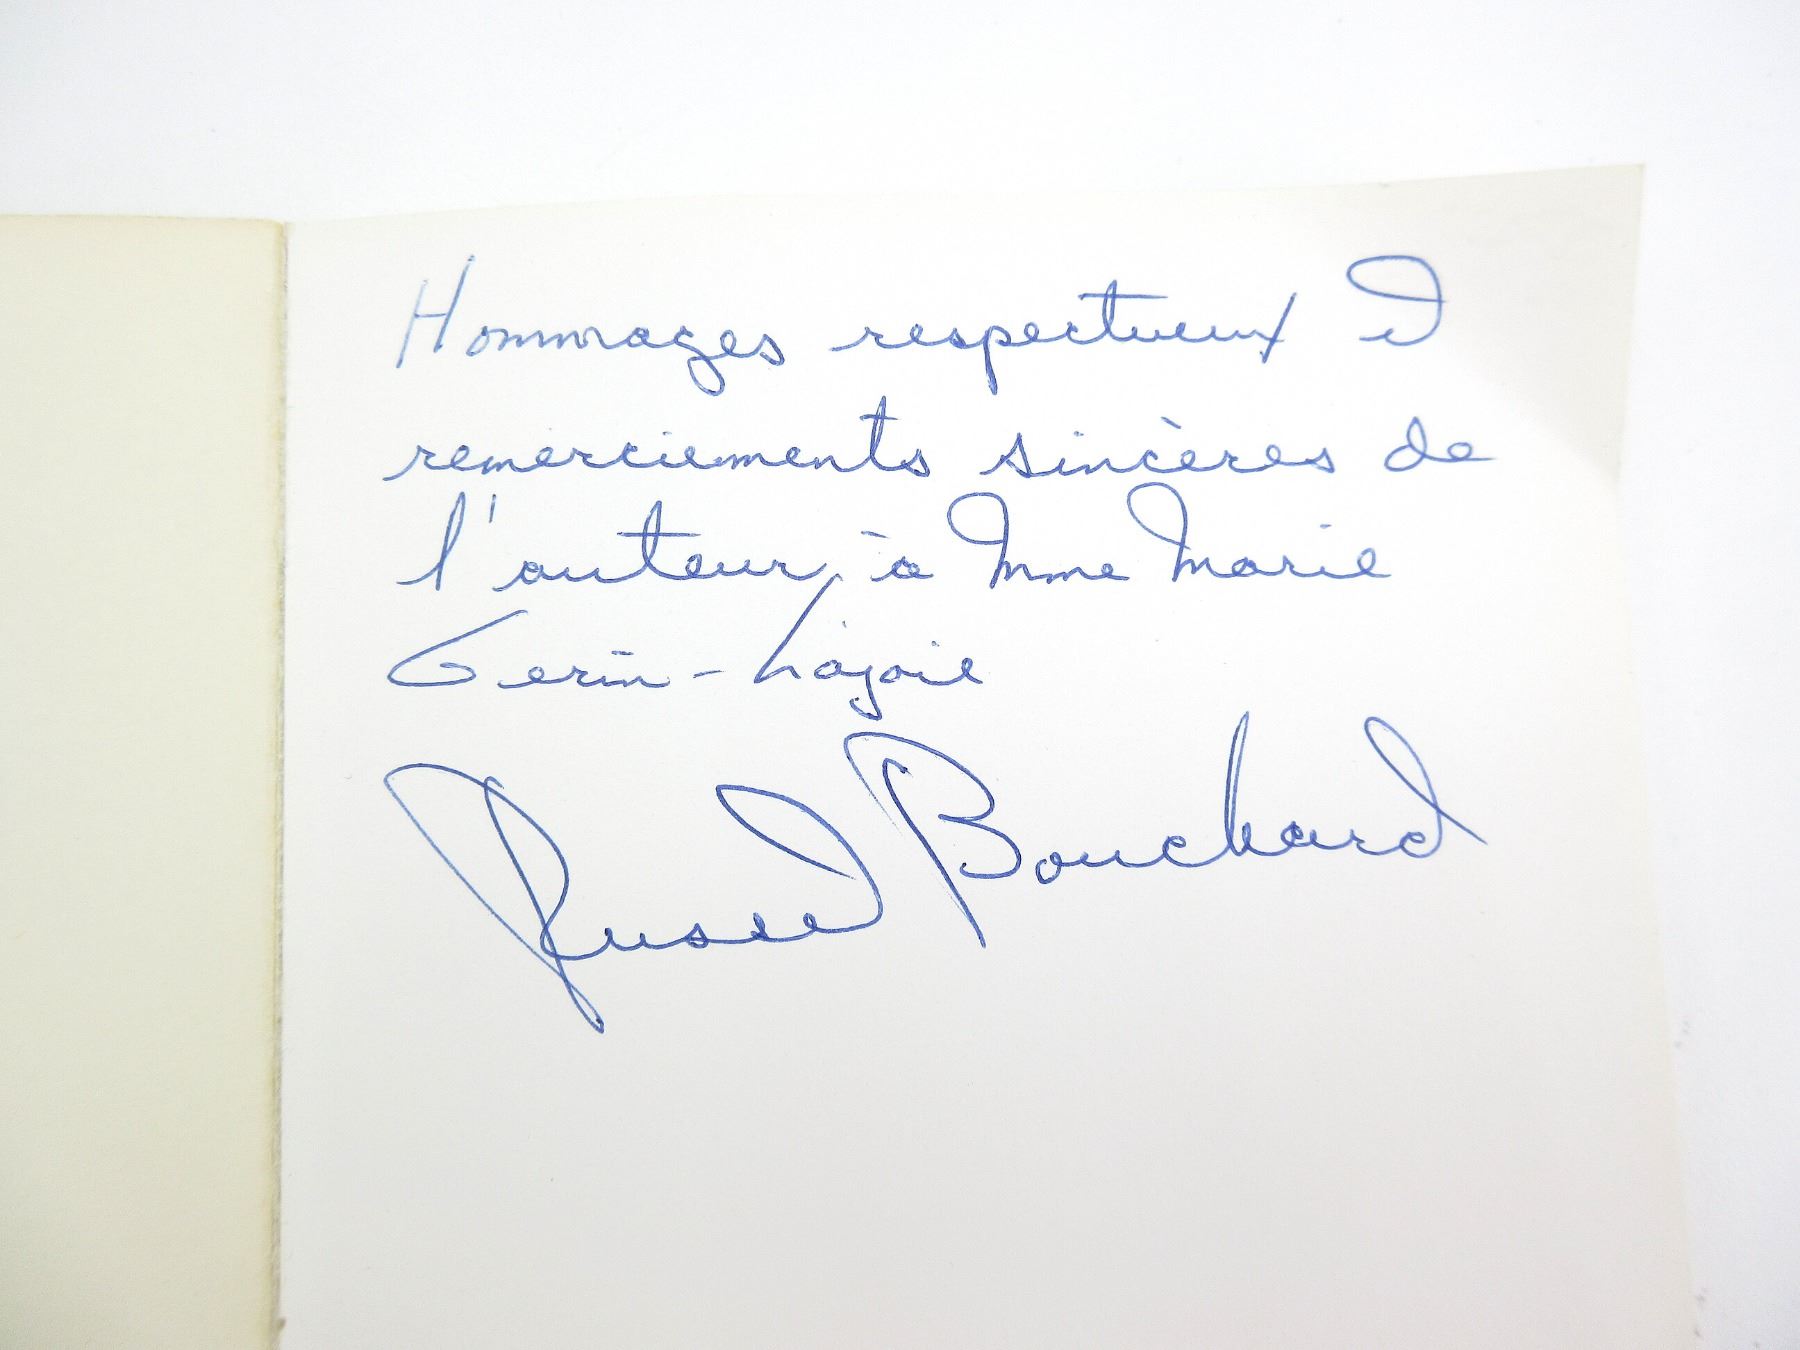 Hommages respectueux et
remerciements sincères de
l'auteur, à Mme Marie
Gérin-Lajoie
Russel Bouchard